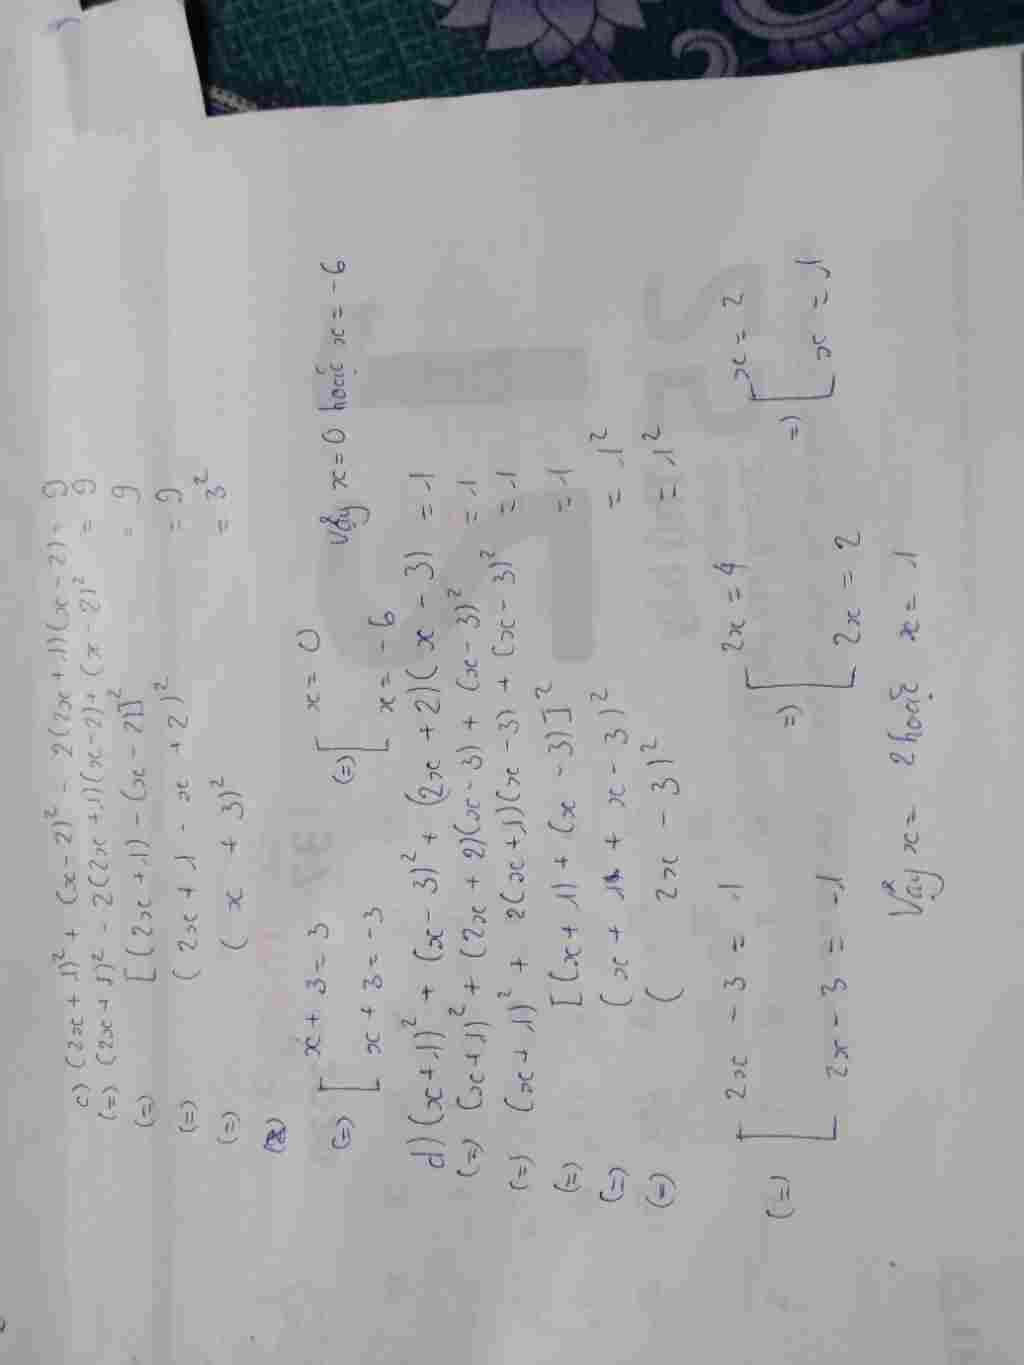 c) (2x + 1)² + (x - 2)² - 2(2x + 1)(x - 2) = 9
(=) (2x + 1)² - 2(2x + 1)(x - 2) + (x - 2)² = 9
(=) [(2x + 1) - (x - 2)]² = 9
(=) (2x + 1 - x + 2)² = 9
(=) (x + 3)² = 3²
(=) [ x + 3 = 3 (=) [ x = 0
x + 3 = -3 x = -6
Vậy x = 0 hoặc x = -6
d) (x + 1)² + (x - 3)² + (2x + 2)(x - 3) = 1
(=) (x + 1)² + (2x + 2)(x - 3) + (x - 3)² = 1
(=) (x + 1)² + 2(x + 1)(x - 3) + (x - 3)² = 1
(=) [(x + 1) + (x - 3)]² = 1
(=) (x + 1 + x - 3)² = 1²
(=) (2x - 3)² = 1²
(=) [ 2x - 3 = 1 =) [ 2x = 4 =) [ x = 2
2x - 3 = -1 2x = 2 x = 1
Vậy x = 2 hoặc x = 1